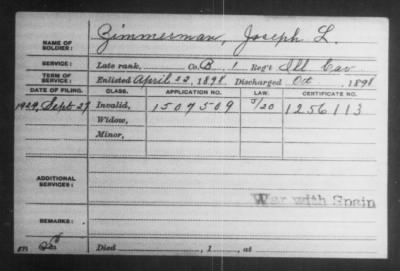 NAME OF SOLDIER: Zimmerman, Joseph L.
SERVICE: Late rank, Co. B, 1 Reg't Ill Cav
TERM OF SERVICE: Enlisted April 22, 1898, Discharged Oct, 1898
DATE OF FILING. CLASS. APPLICATION NO. LAW. CERTIFICATE NO.
1924, Sept. 27 Invalid, 1507509 5/20 1256113
Widow,
Minor,
ADDITIONAL SERVICES:
War with Spain
REMARKS:
Died , 1 , at